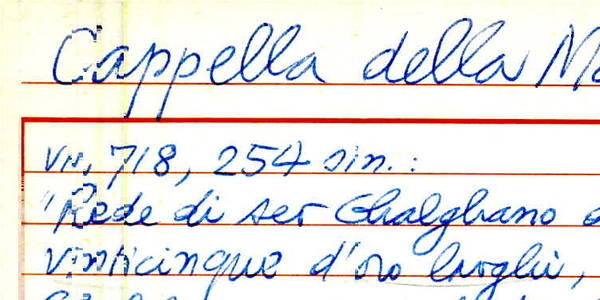 Cappella della Ma
VII, 718, 254 sin.:
"Rede di ser Ghalghano
vinticinque d'oro larghi,